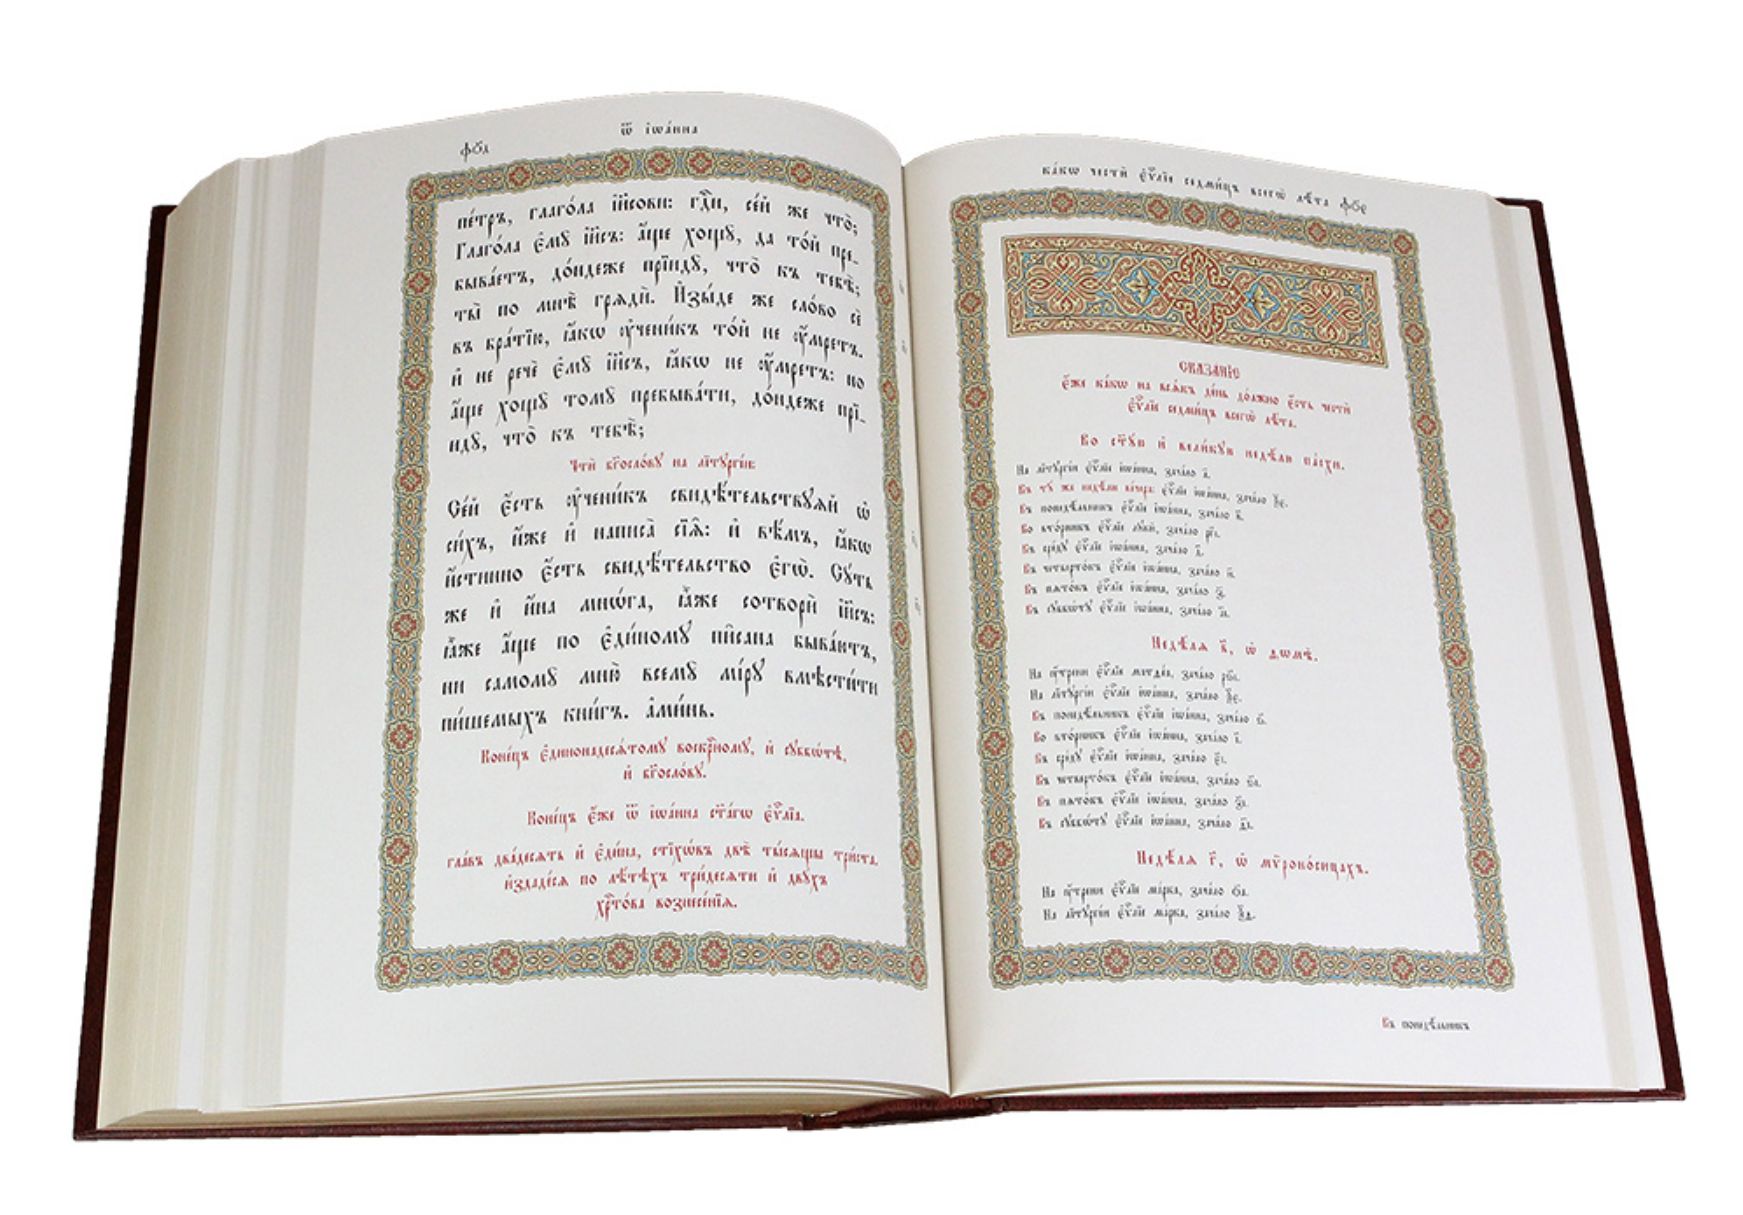 ѿ іѡа́нна
фо҃д
пе́тръ, глаго́ла і҆и҃сови: гдⷭ҇и, се́й же что̀;
Глаго́ла є҆мꙋ̀ і҆и҃съ: а҆́ще хощꙋ̀, да то́й пре-
быва́етъ, до́ндеже прїидꙋ̀, что̀ къ тебѣ̀;
ты̀ по мнѣ̀ грѧдѝ. И҆зы́де же сло́во сѐ
въ бра́тїю, ꙗ҆́кѡ ᲂу҆чени́къ то́й не ᲂу҆́мретъ.
и҆ не речѐ є҆мꙋ̀ і҆и҃съ, ꙗ҆́кѡ не ᲂу҆́мретъ: но
а҆́ще хощꙋ̀ томꙋ̀ пребыва́ти, до́ндеже прїи-
идꙋ̀, что̀ къ тебѣ̀;
Чтѝ бг҃осло́вꙋ на лїтꙋргі́и:
Се́й є҆́сть ᲂу҆чени́къ свидѣ́тельствꙋѧй ѡ҆
си́хъ, и҆́же и҆ написа̀ сїѧ̑: и҆ вѣ́мъ, ꙗ҆́кѡ
и҆́стинно є҆́сть свидѣ́тельство є҆гѡ̀. Сꙋ́ть
же и҆ и҆́на мнѡ́га, ꙗ҆̀же сотворѝ і҆и҃съ:
ꙗ҆̀же а҆́ще по є҆ди́номꙋ пи̑сана быва́ютъ,
ни самомꙋ̀ мню̀ всемꙋ̀ мі́рꙋ вмѣсти́ти
пи́шемыхъ кни́гъ. а҆ми́нь.
Коне́цъ є҆диннонадесѧ́томꙋ воскрⷭ҇номꙋ, и҆ сꙋббѡ́тѣ,
и҆ бг҃осло́вꙋ.
Коне́цъ є҆́же ѿ і҆ѡа́нна ст҃а́гѡ є҆ѵⷢ҇лїа.
гла́въ два́десѧть и҆ є҆ди́на, стїхѡ́въ двѣ̀ ты́сѧщы три́ста.
и҆здаде́сѧ по лѣ́тѣхъ три́десѧти и҆ двꙋ́хъ
хрⷭ҇то́ва вознесе́нїѧ.
ка́кѡ честѝ є҆ѵⷢ҇лїе седми́цъ всегѡ̀ лѣ́та фо҃є
СКАЗАНІЕ
є҆́же ка́кѡ на всѧ́къ де́нь до́лжно є҆́сть честѝ
є҆ѵⷢ҇лїе седми́цъ всегѡ̀ лѣ́та.
Во ст҃ꙋ́ю и҆ вели́кꙋю недѣ́лю па́схи.
На лїтꙋргі́и є҆ѵⷢ҇лїе і҆ѡа́нна, зача́ло а҃.
Въ тꙋ́ же недѣ́лю ве́чера: є҆ѵⷢ҇лїе і҆ѡа́нна, зача́ло ѯ҃є.
Въ понедѣ́льникъ є҆ѵⷢ҇лїе і҆ѡа́нна, зача́ло в҃.
Во вто́рникъ є҆ѵⷢ҇лїе лꙋкѝ, зача́ло рг҃і.
Въ сре́дꙋ є҆ѵⷢ҇лїе і҆ѡа́нна, зача́ло д҃.
Въ четверто́къ є҆ѵⷢ҇лїе і҆ѡа́нна, зача́ло и҃.
Въ пѧто́къ є҆ѵⷢ҇лїе і҆ѡа́нна, зача́ло з҃.
Въ сꙋббѡ́тꙋ є҆ѵⷢ҇лїе і҆ѡа́нна, зача́ло а҃і.
Недѣ́лѧ в҃, ѡ҆ ѳѡмѣ̀.
На ᲂу҆́трени є҆ѵⷢ҇лїе матѳе́а, зача́ло рѕ҃і.
На лїтꙋргі́и є҆ѵⷢ҇лїе і҆ѡа́нна, зача́ло ѯ҃є.
Въ понедѣ́льникъ є҆ѵⷢ҇лїе і҆ѡа́нна, зача́ло
Во вто́рникъ є҆ѵⷢ҇лїе і҆ѡа́нна, зача́ло і҃.
Въ сре́дꙋ є҆ѵⷢ҇лїе і҆ѡа́нна, зача́ло є҃і.
Въ четверто́къ є҆ѵⷢ҇лїе і҆ѡа́нна, зача́ло
Въ пѧто́къ є҆ѵⷢ҇лїе і҆ѡа́нна, зача́ло з҃і.
Въ сꙋббѡ́тꙋ є҆ѵⷢ҇лїе і҆ѡа́нна, зача́ло д҃і.
Недѣ́лѧ г҃, ѡ҆ мѷроно́сицахъ.
На ᲂу҆́трени є҆ѵⷢ҇лїе ма́рка, зача́ло о҃а.
На лїтꙋргі́и є҆ѵⷢ҇лїе ма́рка, зача́ло ѯ҃д.
Въ понедѣ́льникъ